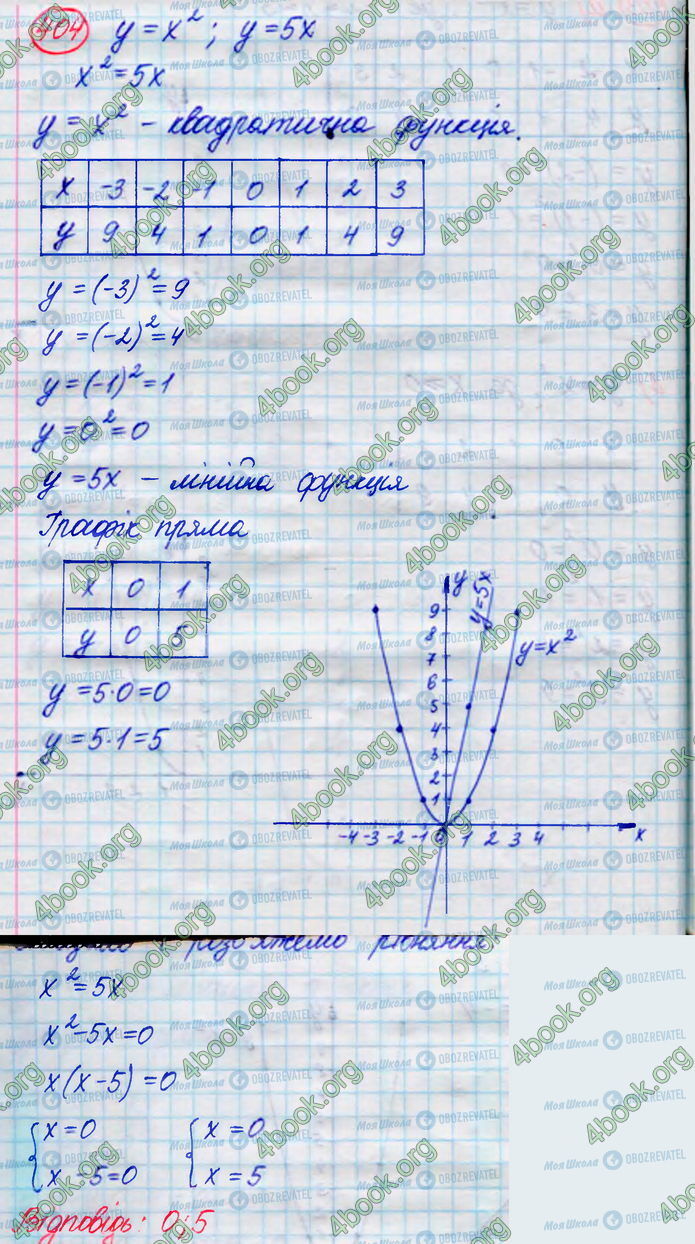 404 y = x²; y = 5x
x² = 5x
y = x² – квадратична функція.
x -3 -2 -1 0 1 2 3
y 9 4 1 0 1 4 9
y = (-3)² = 9
y = (-2)² = 4
y = (-1)² = 1
y = 0² = 0
y = 5x – лінійна функція
Графік пряма
x 0 1
y 0 5
y = 5·0 = 0
y = 5·1 = 5
y
y=5x
y=x²
9
8
7
6
5
4
3
2
1
-4 -3 -2 -1 0 1 2 3 4 x
розв'яжемо рівняння
x² = 5x
x² - 5x = 0
x(x - 5) = 0
{ x = 0 { x = 0
{ x - 5 = 0 { x = 5
Відповідь: 0; 5
4book.org
Моя Школа OBOZREVATEL